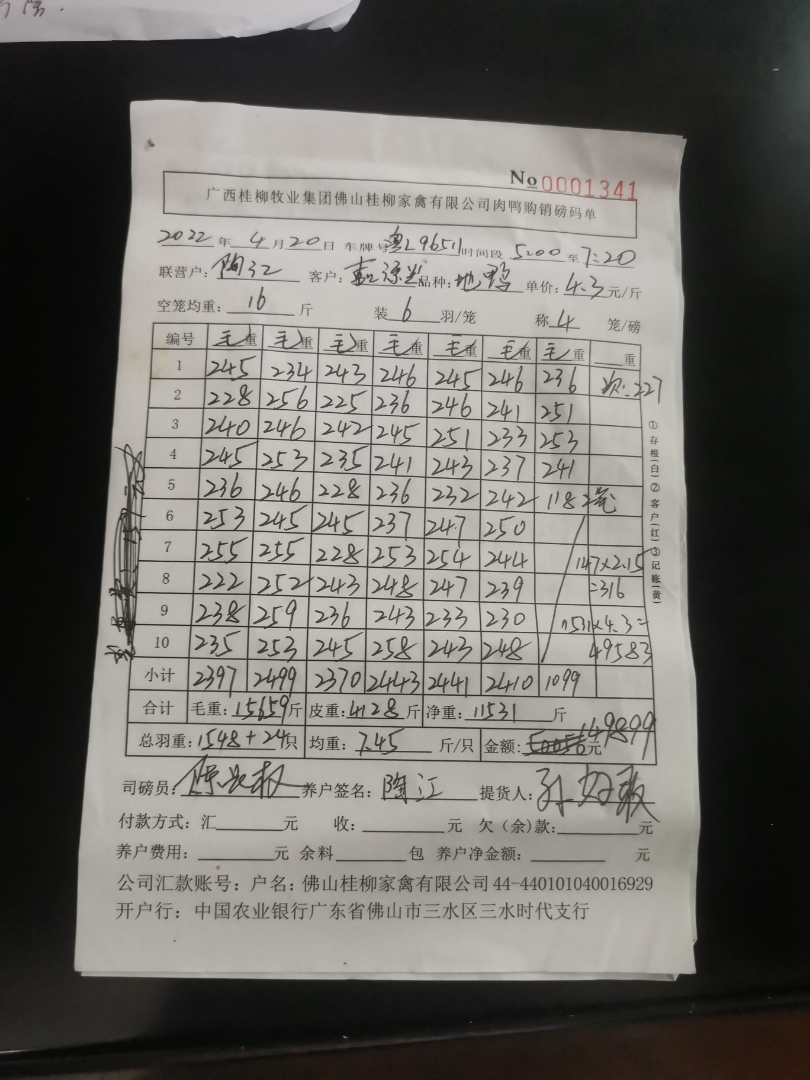 No 0001341
广西桂柳牧业集团佛山桂柳家禽有限公司肉鸭购销磅码单
2022年 4月20日 车牌号粤L9651J时间段 5:00 至7:20
联营户:陶江 客户: 品种:地鸭 单价:4.3元/斤
空笼均重: 16 斤 装 6 羽/笼 称 4 笼/磅
编号 毛重 毛重 毛重 毛重 毛重 毛重 毛重 重
1 245 234 243 246 245 246 236 次:227
2 228 256 225 236 246 241 251
3 240 246 242 245 251 233 253
4 245 253 235 241 243 237 241
5 236 246 228 236 232 242 118 2笼
6 253 245 245 237 247 250
7 255 255 228 253 254 244 147×2.15
8 222 252 243 248 247 239 =316
9 238 259 236 243 233 230 11531×4.3=
10 235 253 245 258 243 248 49583
小计 2397 2499 2370 2443 2441 2410 1099
合计 毛重:15659斤 皮重:4128斤 净重:11531 斤
总羽重:1548+24只 均重:7.45 斤/只 金额:49899元
司磅员: 养户签名:陶江 提货人:
付款方式:汇 元 收: 元 欠(余)款: 元
养户费用: 元 余料 包 养户净金额: 元
公司汇款账号:户名:佛山桂柳家禽有限公司44-440101040016929
开户行:中国农业银行广东省佛山市三水区三水时代支行
①存根(白)②客户(红)③记账(黄)